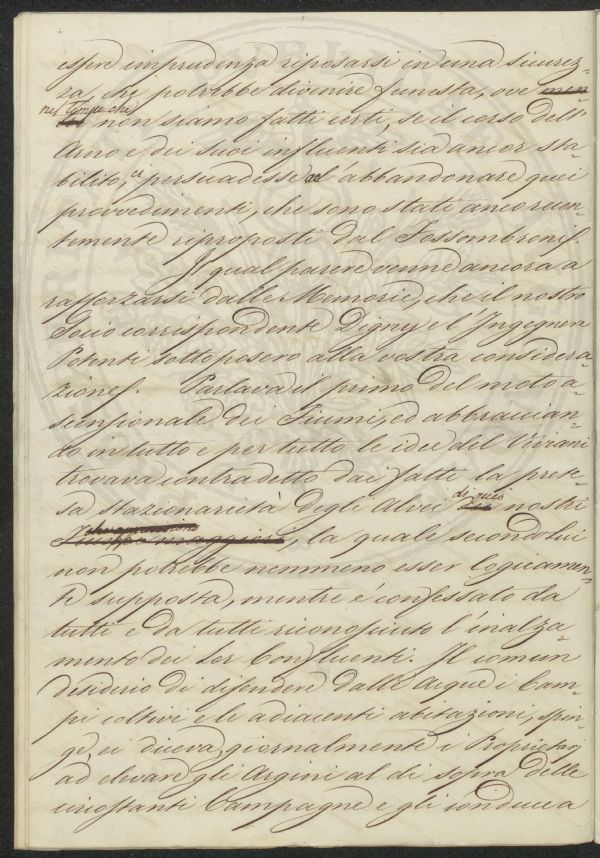 essere imprudenza riposarsi in una sicurez-
za, che potrebbe divenire funesta, ove
nel tempo che
non siamo fatti certi, se il corso dell'
Arno e dei suoi influenti sia ancor sta-
bilito, ci persuadesse all'abbandonare quei
provvedimenti, che sono stati ancor recen-
temente riproposti dal Fossombroni.
Il qual parere venne ancora a
rafforzarsi dalle Memorie, che il nostro
Socio corrispondente Digny e l'Ingegnere
Potenti sottoposero alla vostra considera-
zione. Parlava il primo del moto a-
scensionale dei Fiumi, ed abbraccian-
do in tutto e per tutto le idee del Viviani
trovava contradetto dai fatti la prete-
sa stazionarietà degli Alvei di questi nostri
, la quale secondo lui
non potrebbe nemmeno esser logicamen-
te supposta, mentre è confessato da
tutti e da tutti riconosciuto l'inalza-
mento dei lor Confluenti. Il comun
desiderio di difendere dalle Acque i Cam-
pi coltivi e le adiacenti abitazioni, spin-
ge, ei diceva, giornalmente i Proprietarj
ad elevare gli Argini al di sopra delle
circostanti Campagne e gli conduce a